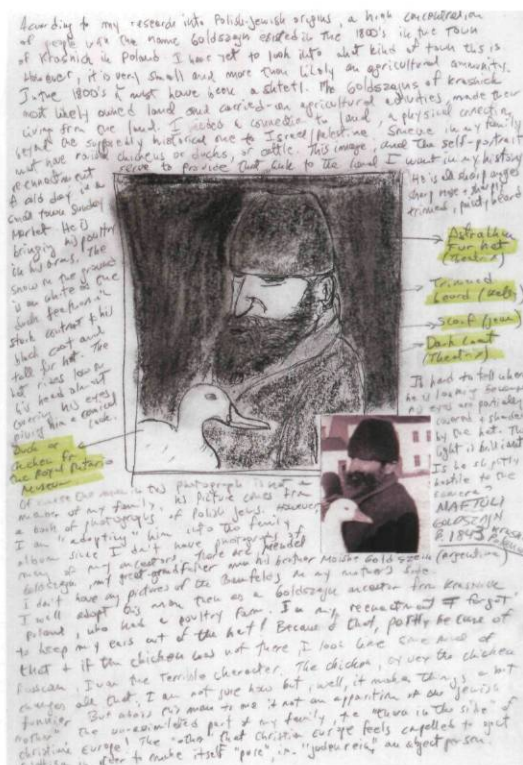 According to my research into Polish-Jewish origins, a high concentration
of people with the name Goldszajn existed in the 1800's in the town
of Krasnick in Poland. I have yet to look into what kind of town this is.
However, it is very small and more than likely an agricultural community.
In the 1800's it must have been a shtetl. The Goldszajns of Krasnick
most likely owned land and carried-on agricultural activities, made their
living from the land. I needed a connection to land, a physical connection
beyond the supposedly historical one to Israel/Palestine. Someone in my family
must have raised chickens or ducks, or cattle. This image, and the self-portrait
re-enactment serve to provide that link to the land I want in my history
A cold day in a
small town Sunday
market. He is
bringing his poultry
in his arms. The
snow on the ground
is as white as the
duck feathers in
stark contrast to his
black coat and
tall fur hat. The
hat rises from
his head almost
covering his eyes
giving him a comical
look.
He is all sharp angles
sharp nose + sharply
trimmed, pointy beard
Astrakhan
Fur hat
(Theatrix)
Trimmed
beard
Scarf
Dark Coat
(Theatrix)
Duck or
chicken fr.
the Royal Ontario
Museum.
It hard to tell where
he is looking because
his eyes are partially
covered + shaded
by the hat. The
light is brilliant
He is slightly
hostile to the
camera
MAFTULI
GOLDSZAJN
b. 1843
Of course the man in this photograph is not a
member of my family, his picture comes from
a book of photographs of Polish Jews. However,
I am "adopting" him into the family
album since I don't have photographs of
many of my ancestors. There are Mendel
Goldszajn, my great grandfather and his brother Moishe Goldszein (Argentina)
I don't have any pictures of the on my mother's side.
I will adopt this man then as a Goldszajn ancestor from Krasnick
Poland, who had a poultry farm. In my reenactment I forgot
to keep my ears out of the hat! Because of that, partly because of
that + if the chicken was not there I look like some kind of
Russian, Ivan the Terrible character. The chicken, oy vey the chicken
changes all that, I am not sure how but, well, it makes things a bit
funnier. But this man to me is not an apparition of the Jewish
"other" the unassimilated part of my family, the "thorn in the side" of
Christian Europe! The "other" that Christian Europe feels compelled to eject
in order to make itself "pure", in "judenrein" an abject person.